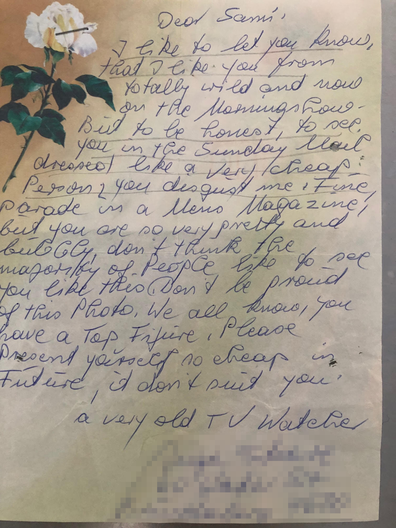 Dear Sami.
I like to let you know,
that I like you from
totally wild and now
on the Morningshow.
But to be honest, to see
you in the Sunday Mail
dressed like a very cheap
Person, you disgust me. Fine,
parade in a Mens Magazine,
but you are so very pretty and
bubbly, don't think the
majority of People like to see
you like this. Don't be proud
of this Photo. We all know, you
have a Top Figure, Please
present yourself so cheap in
Future, it don't suit you.
a very old TV Watcher